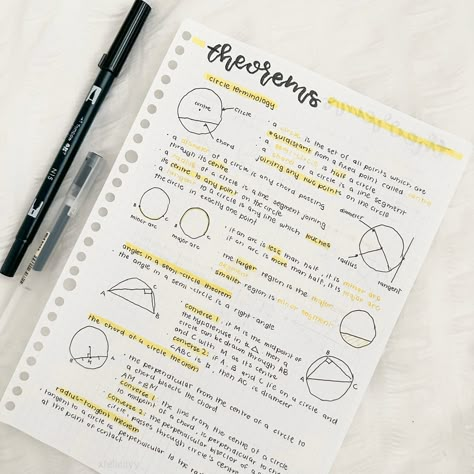 theorems
circle terminology
centre
circle
chord
a circle is the set of all points which are
equidistant from a fixed point called centre
a semi circle is half a circle
a chord of a circle is a line segment
joining any two points on the circle
a diameter of a circle is any chord passing
through its centre
a radius of a circle is a line segment joining
its centre to any point on the circle
a tangent to a circle is any line which touches
the circle in exactly one point
diameter
radius
tangent
B C
minor arc
B C
major arc
if an arc is less than half, it is minor arc
if an arc is more than half, it is major arc
the larger region is the major
smaller region is
angles in a semi circle theorem
the angle in a semi circle is a right angle
A B C
converse 1: if M is the midpoint of
the hypotenuse in a Δ, then a
circle can be drawn through A, B
and C with M as its centre
converse 2: if A, B and C lie on a circle and
∠ABC is a, then AC is diameter
B
A C
the chord of a circle theorem
the perpendicular from the centre of a circle to
a chord bisects the chord
AM = BM
converse 1: the line from the centre of a circle
to midpoint of a chord is perpendicular to the
converse 2: the perpendicular bisector of a
circle passes through circle's centre
radius-tangent theorem
tangent to a circle is perpendicular to the
at the point of contact
Tombow
N15